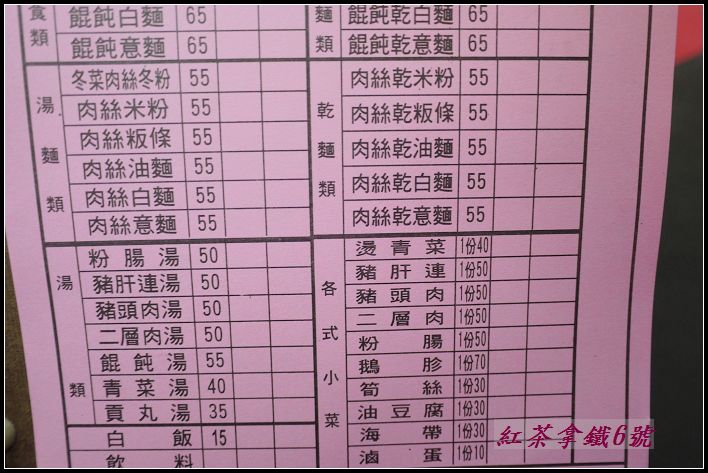 食類
餛飩白麵 65
餛飩意麵 65
湯麵類
冬菜肉絲冬粉 55
肉絲米粉 55
肉絲粄條 55
肉絲油麵 55
肉絲白麵 55
肉絲意麵 55
湯類
粉腸湯 50
豬肝連湯 50
豬頭肉湯 50
二層肉湯 50
餛飩湯 55
青菜湯 40
貢丸湯 35
白飯 15
飲料
麵類
餛飩乾白麵 65
餛飩乾意麵 65
乾麵類
肉絲乾米粉 55
肉絲乾粄條 55
肉絲乾油麵 55
肉絲乾白麵 55
肉絲乾意麵 55
各式小菜
燙青菜 1份40
豬肝連 1份50
豬頭肉 1份50
二層肉 1份50
粉腸 1份50
鵝胗 1份70
筍絲 1份30
油豆腐 1份30
海帶 1份30
滷蛋 1份10
紅茶拿鐵6號